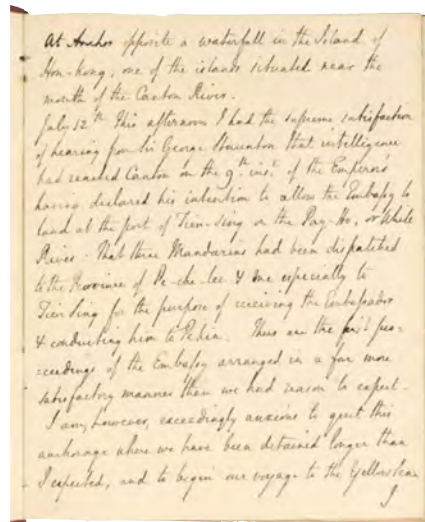 At Anchor opposite a waterfall in the Island of
Hon-kong, one of the islands situated near the
mouth of the Canton River.
July 12th This afternoon I had the supreme satisfaction
of hearing from Sir George Staunton that intelligence
had reached Canton on the 9th inst. of the Emperor's
having declared his intention to allow the Embassy to
land at the port of Tien-sing on the Pay-Ho, or White
River. That three Mandarins had been dispatched
to the Province of Pe-che-lee & one especially to
Tien Sing for the purpose of receiving the Embassador
& conducting him to Pekin. Thus are the first pro=
=ceedings of the Embassy arranged in a far more
satisfactory manner than we had reason to expect.
I am, however, exceedingly anxious to quit this
anchorage where we have been detained longer than
I expected, and to begin our voyage to the Yellow Sea.